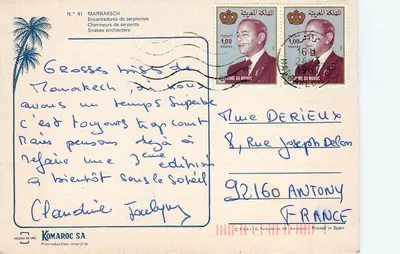 N.° 41 MARRAKECH
Encantadores de serpientes
Charmeurs de serpents
Snakes enchanters
Grosses bises de
Marrakech où nous
avons un temps superbe
c'est toujours trop court
Mais pensons déjà à
refaire une 3ème edition
à bientôt sous le Soleil
Claudine
KOMAROC SA
Reproduction interdite
المملكة المغربية
1,00
ROYAUME DU MAROC
المملكة المغربية
1,00
DU MAROC
16
Mme DERIEUX
8, Rue Joseph Delon
92160 ANTONY
FRANCE
Printed in Spain